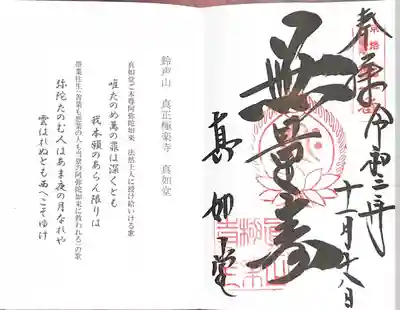 奉拝 令和三年
十一月
無量寿
真如堂
鈴声山 真正極楽寺 真如堂
真如堂ご本尊阿弥陀如来 法然上人に授け給いける歌
唯たのめ萬の罪は深くとも
我本願のあらん限りは
帯業往生(善業も悪業の人も当堂の阿弥陀如来に救われる)の歌
弥陀たのむ人はあま夜の月なれや
雲はれねども西へこそゆけ